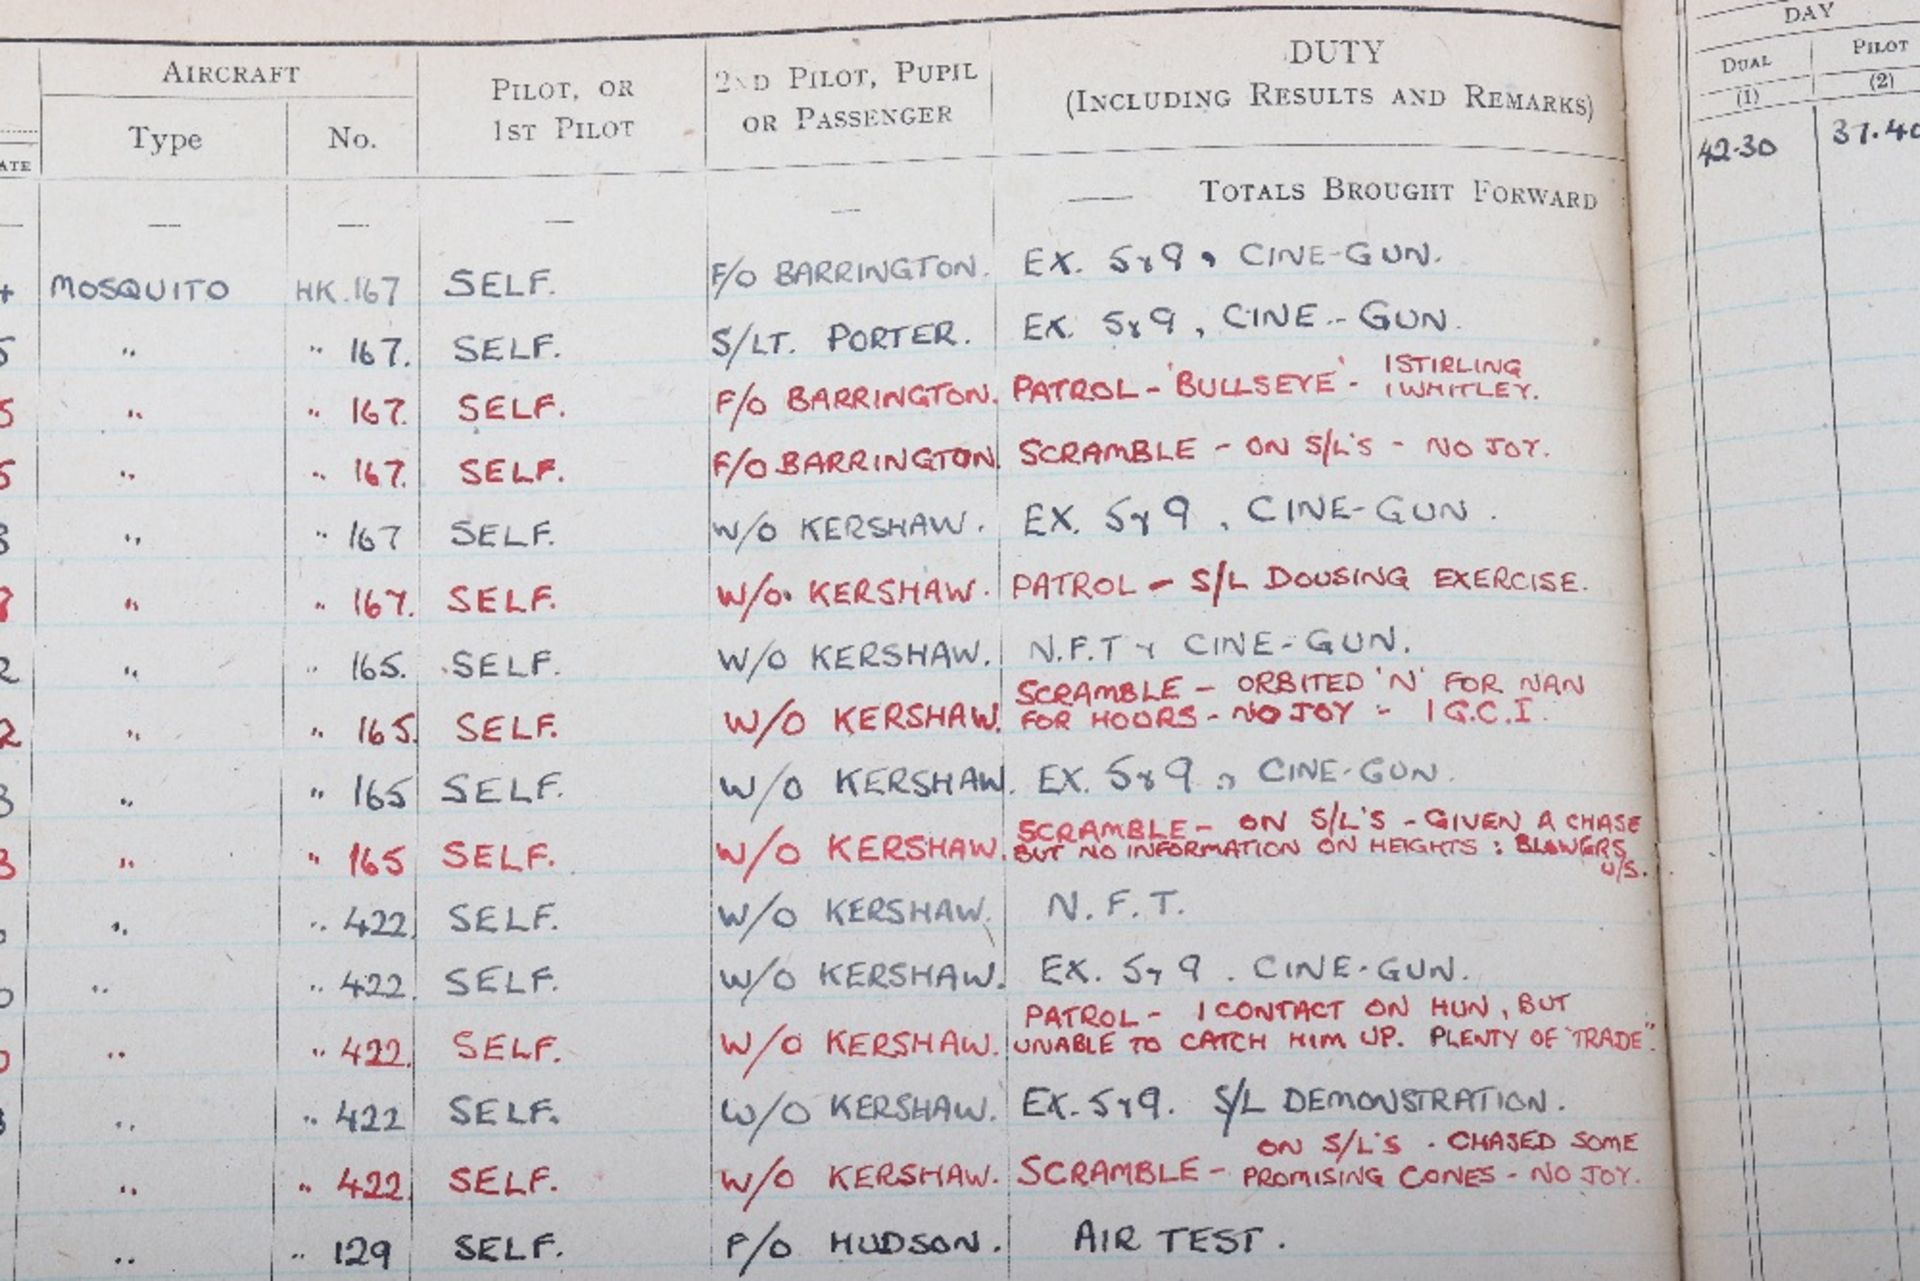 AIRCRAFT PILOT, OR 2ND PILOT, PUPIL DUTY DAY
Type No. 1ST PILOT OR PASSENGER (INCLUDING RESULTS AND REMARKS) DUAL PILOT
ATE (1) (2)
— — — — —— TOTALS BROUGHT FORWARD 42.30 37.40
4 MOSQUITO HK.167 SELF. F/O BARRINGTON. EX. 5&9, CINE-GUN.
5 " " 167. SELF. S/LT. PORTER. EX. 5&9, CINE-GUN.
5 " " 167. SELF. F/O BARRINGTON. PATROL - 'BULLSEYE' - 1 STIRLING
1 WHITLEY.
5 " " 167. SELF. F/O BARRINGTON SCRAMBLE - ON S/L'S - NO JOY.
3 " " 167 SELF. W/O KERSHAW. EX. 5&9, CINE-GUN.
" " 167. SELF. W/O. KERSHAW. PATROL - S/L DOUSING EXERCISE.
2 " " 165. SELF. W/O KERSHAW. N.F.T & CINE-GUN.
2 " " 165. SELF. W/O KERSHAW. SCRAMBLE - ORBITED 'N' FOR NAN
FOR HOURS - NO JOY - 1 G.C.I.
3 " " 165 SELF. W/O KERSHAW. EX. 5&9, CINE-GUN.
3 " " 165 SELF. W/O KERSHAW. SCRAMBLE - ON S/L'S - GIVEN A CHASE
BUT NO INFORMATION ON HEIGHTS : BLOWERS
U/S.
" " 422. SELF. W/O KERSHAW. N.F.T.
" " 422. SELF. W/O KERSHAW. EX. 5&9. CINE-GUN.
" " 422. SELF. W/O KERSHAW. PATROL - 1 CONTACT ON HUN, BUT
UNABLE TO CATCH HIM UP. PLENTY OF "TRADE".
" " 422 SELF. W/O KERSHAW. EX. 5&9. S/L DEMONSTRATION.
" " 422. SELF. W/O KERSHAW. SCRAMBLE - ON S/L'S. CHASED SOME
PROMISING CONES - NO JOY.
" " 129 SELF. F/O HUDSON. AIR TEST.